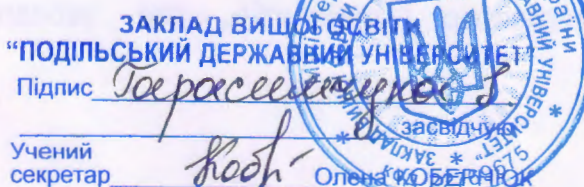 ЗАКЛАД ВИЩОЇ ОСВІТИ
“ПОДІЛЬСЬКИЙ ДЕРЖАВНИЙ УНІВЕРСИТЕТ”
Підпис
засвідчую
Учений
секретар Олена КОБЕРНЮК